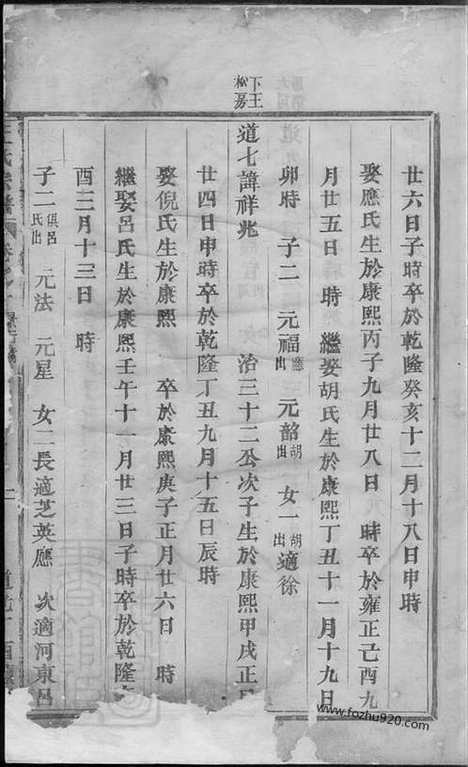 下王
松房
廿六日子時卒於乾隆癸亥十二月十八日申時
娶應氏生於康熙丙子九月廿八日 時卒於雍正己酉九
月廿五日 時 繼娶胡氏生於康熙丁丑十一月十九日
卯時 子二 元福應出 元韶胡出 女一胡出適徐
道七諱祥兆 治三十二公次子生於康熙甲戌正月
廿四日申時卒於乾隆丁丑九月十五日辰時
娶倪氏生於康熙 卒於康熙庚子正月廿六日 時
繼娶呂氏生於康熙壬午十一月廿三日子時卒於乾隆
酉二月十三日 時
子二俱呂氏出 元法 元星 女二長適芝英應 次適河東呂
www.fozhu920.com